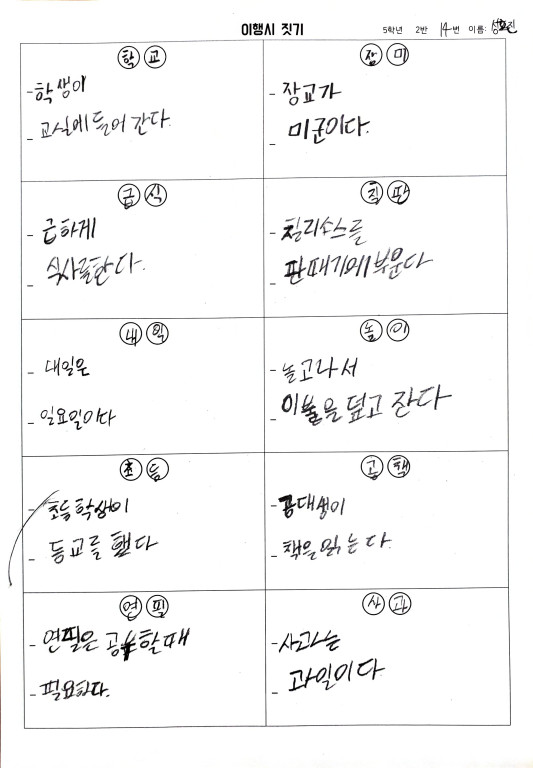 이행시 짓기
5학년 2반 14번 이름:
학교
- 학생이
- 교실에 들어 간다.
장미
- 장교가
- 미군이다.
급식
- 급하게
- 식사를한다.
칠판
- 칠리소스를
- 판때기에 부운다
내일
- 내일은
- 일요일이다
놀이
- 놀고나서
- 이불을 덮고 잔다
초등
- 초등학생이
- 등교를 했다
공책
- 공대생이
- 책을 읽는다.
연필
- 연필은 공부할때
- 필요하다.
사과
- 사과는
- 과일이다